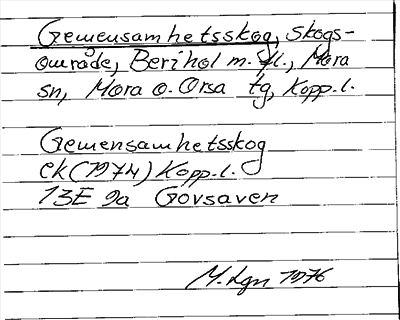 Gemensamhetsskog, skogs-
område, Berihol m. fl., Mora
sn, Mora o. Orsa tg, Kopp. l.
Gemensamhetsskog
ek (1974) Kopp. l.
13E 9a Govsaven
M. Lgn 1976